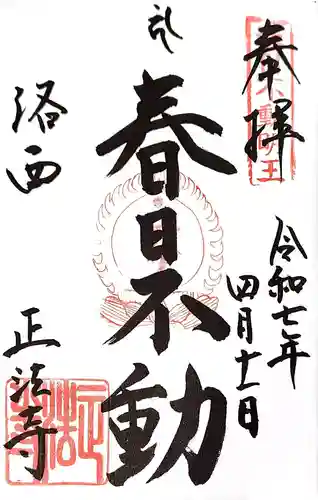 奉拝
不動明王
令和七年
四月十一日
春日不動
洛西
正法寺